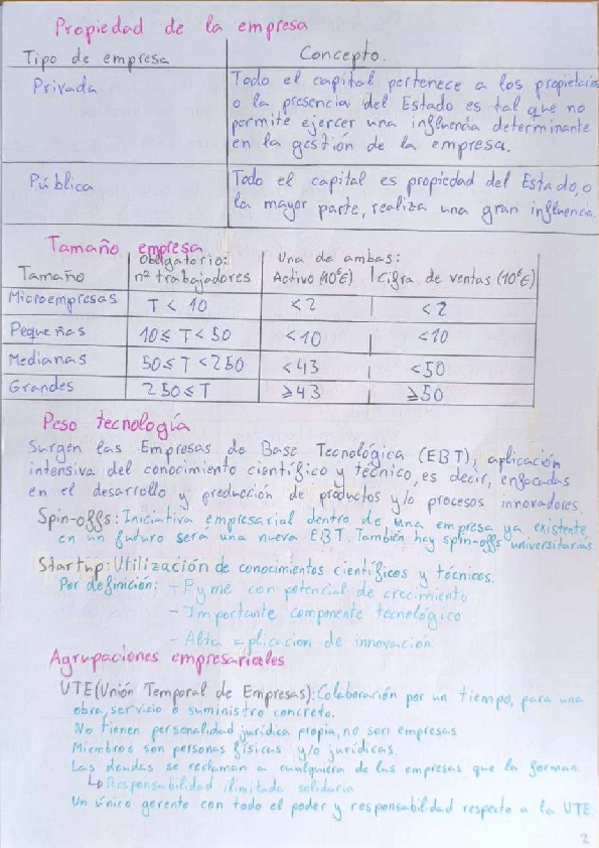 Propiedad de la empresa
Tipo de empresa Concepto.
Privada Todo el capital pertenece a los propietarios
o la presencia del Estado es tal que no
permite ejercer una influencia determinante
en la gestión de la empresa.
Pública Todo el capital es propiedad del Estado, o
la mayor parte, realiza una gran influencia.
Tamaño empresa
Obligatorio: Una de ambas:
Tamaño nº trabajadores Activo (10⁶€) Cifra de ventas (10⁶€)
Microempresas T < 10 <2 <2
Pequeñas 10 ≤ T < 50 <10 <10
Medianas 50 ≤ T < 250 <43 <50
Grandes 250 ≤ T ≥43 ≥50
Peso tecnología
Surgen las Empresas de Base Tecnológica (EBT), aplicación
intensiva del conocimiento científico y técnico, es decir, enfocadas
en el desarrollo y producción de productos y/o procesos innovadores.
Spin-offs: Iniciativa empresarial dentro de una empresa ya existente
en un futuro será una nueva EBT. También hay spin-offs universitarias.
Startup: Utilización de conocimientos científicos y técnicos.
Por definición: - Pyme con potencial de crecimiento
- Importante componente tecnológico
- Alta aplicacion de innovación
Agrupaciones empresariales
UTE (Unión Temporal de Empresas): Colaboración por un tiempo, para una
obra, servicio o suministro concreto.
No tienen personalidad jurídica propia, no son empresas
Miembros son personas físicas y/o jurídicas.
Las deudas se reclaman a cualquiera de las empresas que la forman.
↳ Responsabilidad ilimitada solidaria
Un único gerente con todo el poder y responsabilidad respecto a la UTE.
2